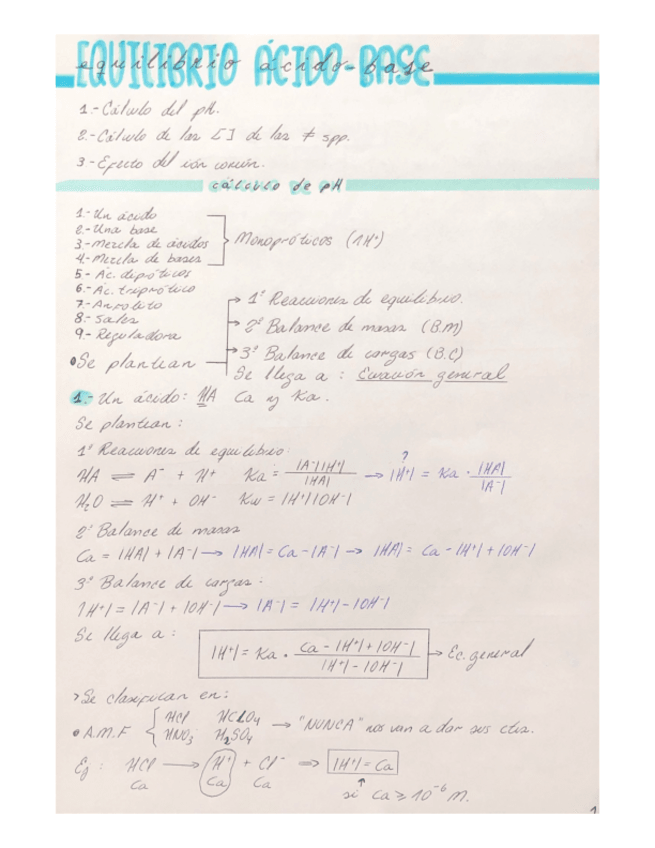 EQUILIBRIO ÁCIDO-BASE
equilibrio ácido-base
1.- Cálculo del pH.
2.- Cálculo de las [ ] de las ≠ spp.
3.- Efecto del ión común.
cálculo de pH
1.- Un ácido
2.- Una base
3.- Mezcla de ácidos
4.- Mezcla de bases
Monopróticos (1H⁺)
5.- Ác. dipróticos
6.- Ác. triprótico
7.- Anfolito
8.- Sales
9.- Reguladora
• Se plantean
→ 1º Reacciones de equilibrio.
→ 2º Balance de masas (B.M)
→ 3º Balance de cargas (B.C)
Se llega a : Ecuación general
1.- Un ácido: HA Ca y Ka.
Se plantean :
1º Reacciones de equilibrio:
HA ⇌ A⁻ + H⁺ Ka = |A⁻||H⁺| / |HA| → |H⁺| = Ka · |HA| / |A⁻|
?
H₂O ⇌ H⁺ + OH⁻ Kw = |H⁺||OH⁻|
2º Balance de masas
Ca = |HA| + |A⁻| → |HA| = Ca - |A⁻| → |HA| = Ca - |H⁺| + |OH⁻|
3º Balance de cargas :
|H⁺| = |A⁻| + |OH⁻| → |A⁻| = |H⁺| - |OH⁻|
Se llega a :
|H⁺| = Ka · Ca - |H⁺| + |OH⁻| / |H⁺| - |OH⁻| → Ec. general
> Se clasifican en :
• A.M.F { HCl HClO₄
HNO₃ H₂SO₄ → "NUNCA" nos van a dar sus ctes.
Ej : HCl → H⁺ + Cl⁻ ⇒ |H⁺| = Ca
Ca Ca Ca
↑
si Ca ≥ 10⁻⁶ M.
1